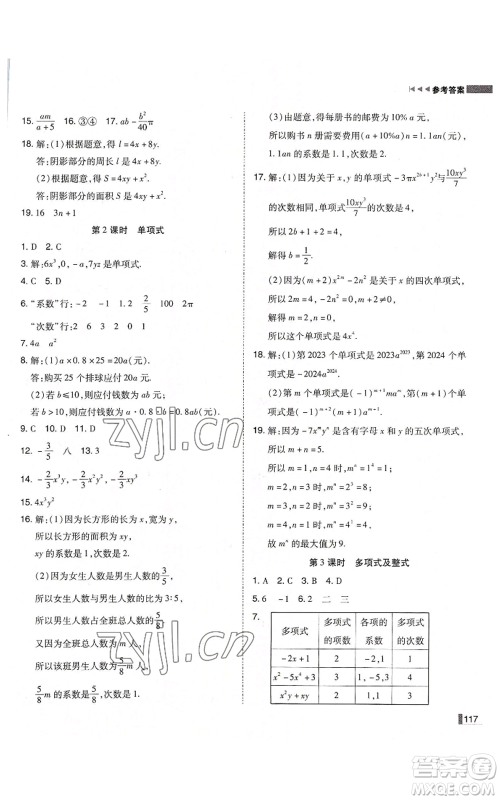 参考答案
15. am/(a+5) 16. ③④ 17. ab-b²/40 π
18. 解:(1)根据题意,得 l=4x+8y.
答:阴影部分的周长 l 是 4x+8y.
(2)根据题意,得 S=4xy+x².
答:阴影部分的面积 S 是 4xy+x².
19. 16 3n+1
第 2 课时 单项式
1. D 2. C
3. 解:6x³,0,-a,7yz 是单项式.
4. C 5. D
6. “系数”行:-2 -1 1.2 2/5 100 2π
“次数”行:2 6 3 2 0 1
7. 4a a²
8. 解:(1)a×0.8×25=20a(元).
答:购买 25 个排球应付钱 20a 元.
(2)若 b≤10,则应付钱数为 ab 元;
若 b>10,则应付钱数为 a·0.8·b=0.8ab(元).
9. C 10. D 11. D
12. -3/5 八 13. D
14. -2/3 x³y,-2/3 x²y²,-2/3 xy³
15. 4x³y²
16. 解:(1)因为长方形的长为 x,宽为 y,
所以长方形的面积为 xy,
xy 的系数是 1,次数是 2.
(2)因为女生人数是男生人数的 3/5,
所以女生人数与男生人数的比为 3:5,
所以男生人数占全班总人数的 5/8.
又因为全班总人数为 m,
所以该班男生人数为 5/8 m,
5/8 m 的系数是 5/8,次数是 1.
(3)由题意,得每册书的邮费为 10% a 元,
所以购书 n 册所需费用为(a+10%a)n=
1.1an(元),
1.1an 的系数是 1.1,次数是 2.
17. 解:(1)因为关于 x,y 的单项式 -3πx^(2b+1)y² 与 10xy³/7
的次数相同,单项式 10xy³/7 的次数是 4,
所以 2b+1+2=4,
所以 b=1/2.
(2)因为(m+2)x^(2m)-2n² 是关于 x 的四次单项式,
所以 2m=4,-2n²=0,
所以 m=2,n=0,
所以这个单项式是 4x⁴.
18. 解:(1)第 2023 个单项式为 a²⁰²³,第 2024 个单
项式为 -2024a²⁰²⁴.
(2)第 m 个单项式为 (-1)^(m+1)ma^m,
第(m+1)个单项式为 (-1)^(m+2)(m+1)a^(m+1).
19. 解:因为 -7x^m y^n 是含有字母 x 和 y 的五次单项式,
所以 m+n=5.
因为 m,n 均为正整数,
所以当 m=1,n=4 时,m^n=1⁴=1;
当 m=2,n=3 时,m^n=2³=8;
当 m=3,n=2 时,m^n=3²=9;
当 m=4,n=1 时,m^n=4¹=4.
故 m^n 的最大值为 9.
第 3 课时 多项式及整式
1. A 2. C 3. D 4. D
5. 6 -1 6. 2 二 三
7.
多项式 多项式的项数 各项的系数 多项式的次数
-2x+1 2 -2,1 1
x²-5x⁴+3 3 1,-5,3 4
x²y+xy 2 1,1 3
117
zyjl.cn
zyjl.cn
答案圈
MXQE.COM